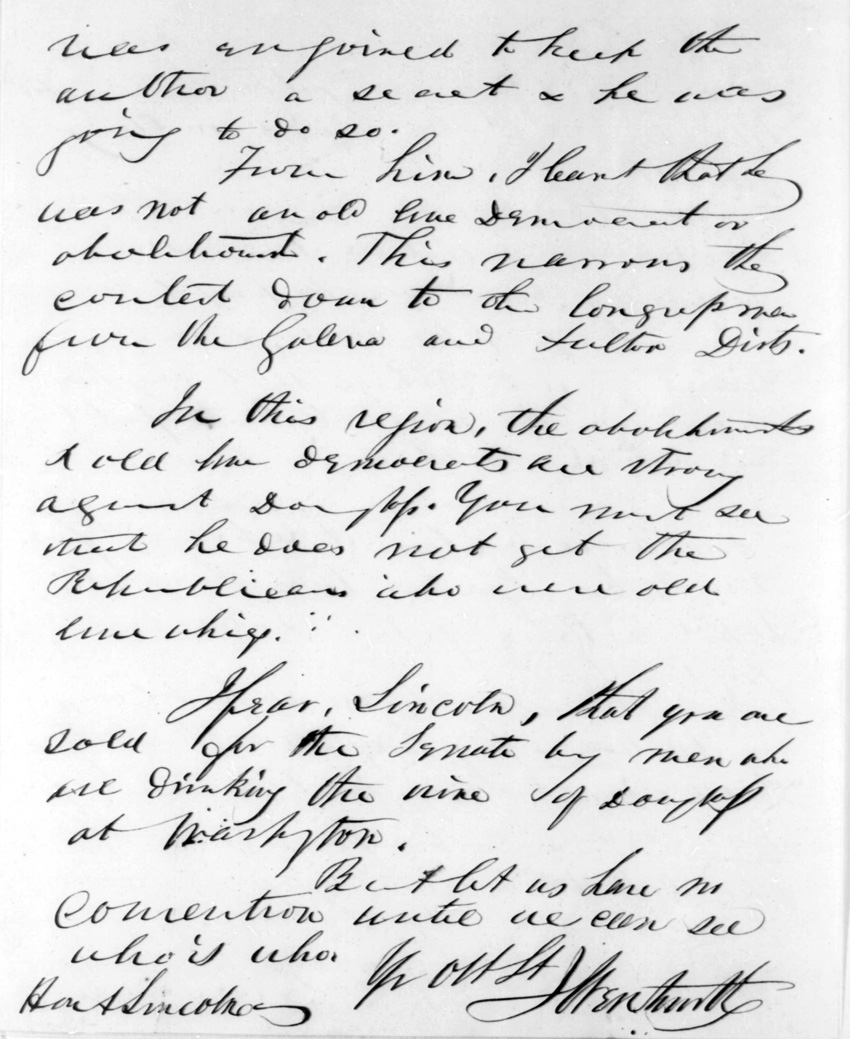 was enjoined to keep the
author a secret & he was
going to do so.
From him, I learnt that he
was not an old line Democrat or
abolitionist. This narrows the
contest down to the Congressmen
from the Galena and Fulton Dists.
In this region, the abolitionists
& old line democrats are strong
against Douglass. You must see
that he does not get the
Republicans who were old
line whigs.
I fear, Lincoln, that you are
sold for the Senate by men who
are drinking the wine of Douglass
at Washington.
But let us have no
convention until we can see
who is who.
Yr Obt St J Wentworth
Hon A Lincoln